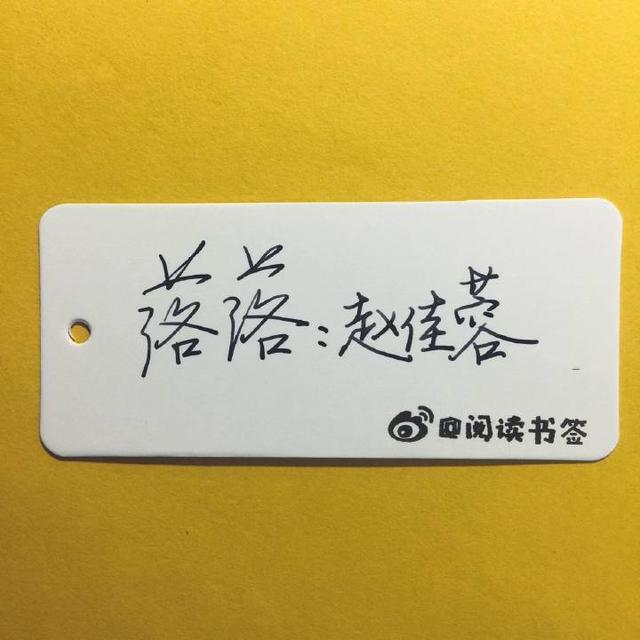 落落：赵佳蓉
@阅读书签